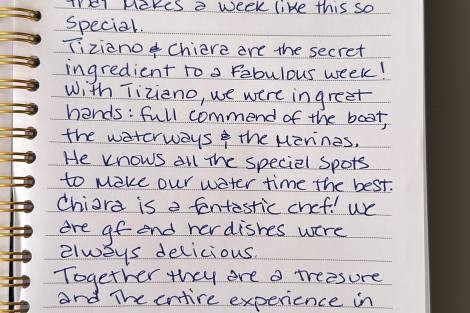 that makes a week like this so
special.
Tiziano & Chiara are the secret
ingredient to a Fabulous week!
With Tiziano, we were in great
hands: full command of the boat,
the waterways & the Marinas.
He knows all the special spots
to make our water time the best.
Chiara is a fantastic chef! We
are gf and her dishes were
always delicious.
Together they are a treasure
and the entire experience in